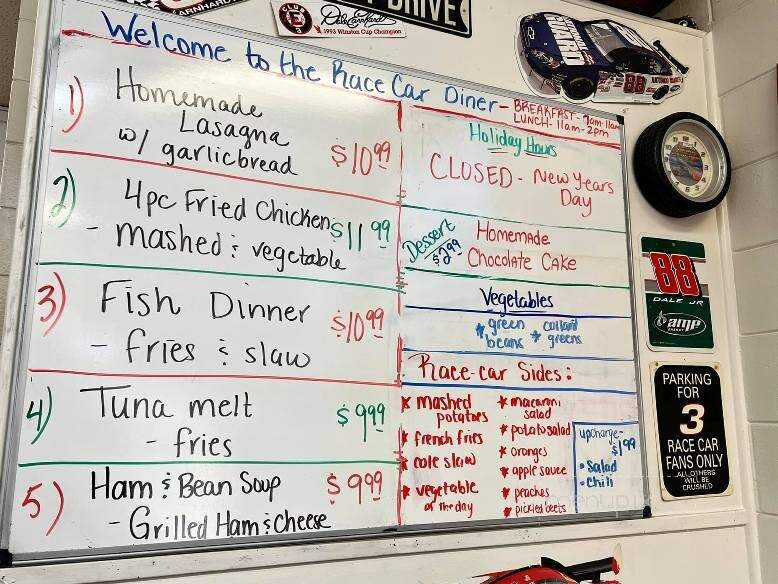 EARNHARDT
CLUB
E
Dale Earnhardt
1993 Winston Cup Champion
DRIVE
Welcome to the Race Car Diner - BREAKFAST - 7am-11am
LUNCH - 11am-2pm
1) Homemade
Lasagna
w/ garlic bread $10.99
2) 4pc Fried Chicken $11.99
- mashed & vegetable
3) Fish Dinner $10.99
- fries & slaw
4) Tuna melt $9.99
- fries
5) Ham & Bean Soup $9.99
- Grilled Ham & cheese
Holiday Hours
CLOSED - New Years
Day
Dessert
$2.99
Homemade
Chocolate Cake
Vegetables
* green beans
* collard greens
Race-car Sides:
* mashed potatoes
* french fries
* cole slaw
* vegetable of the day
* macaroni salad
* potato salad
* oranges
* apple sauce
* peaches
* pickled beets
upcharge-
$1.99
• Salad
• chili
88
88
DALE JR
amp
ENERGY
PARKING
FOR
3
RACE CAR
FANS ONLY
ALL OTHERS
WILL BE
CRUSH'D